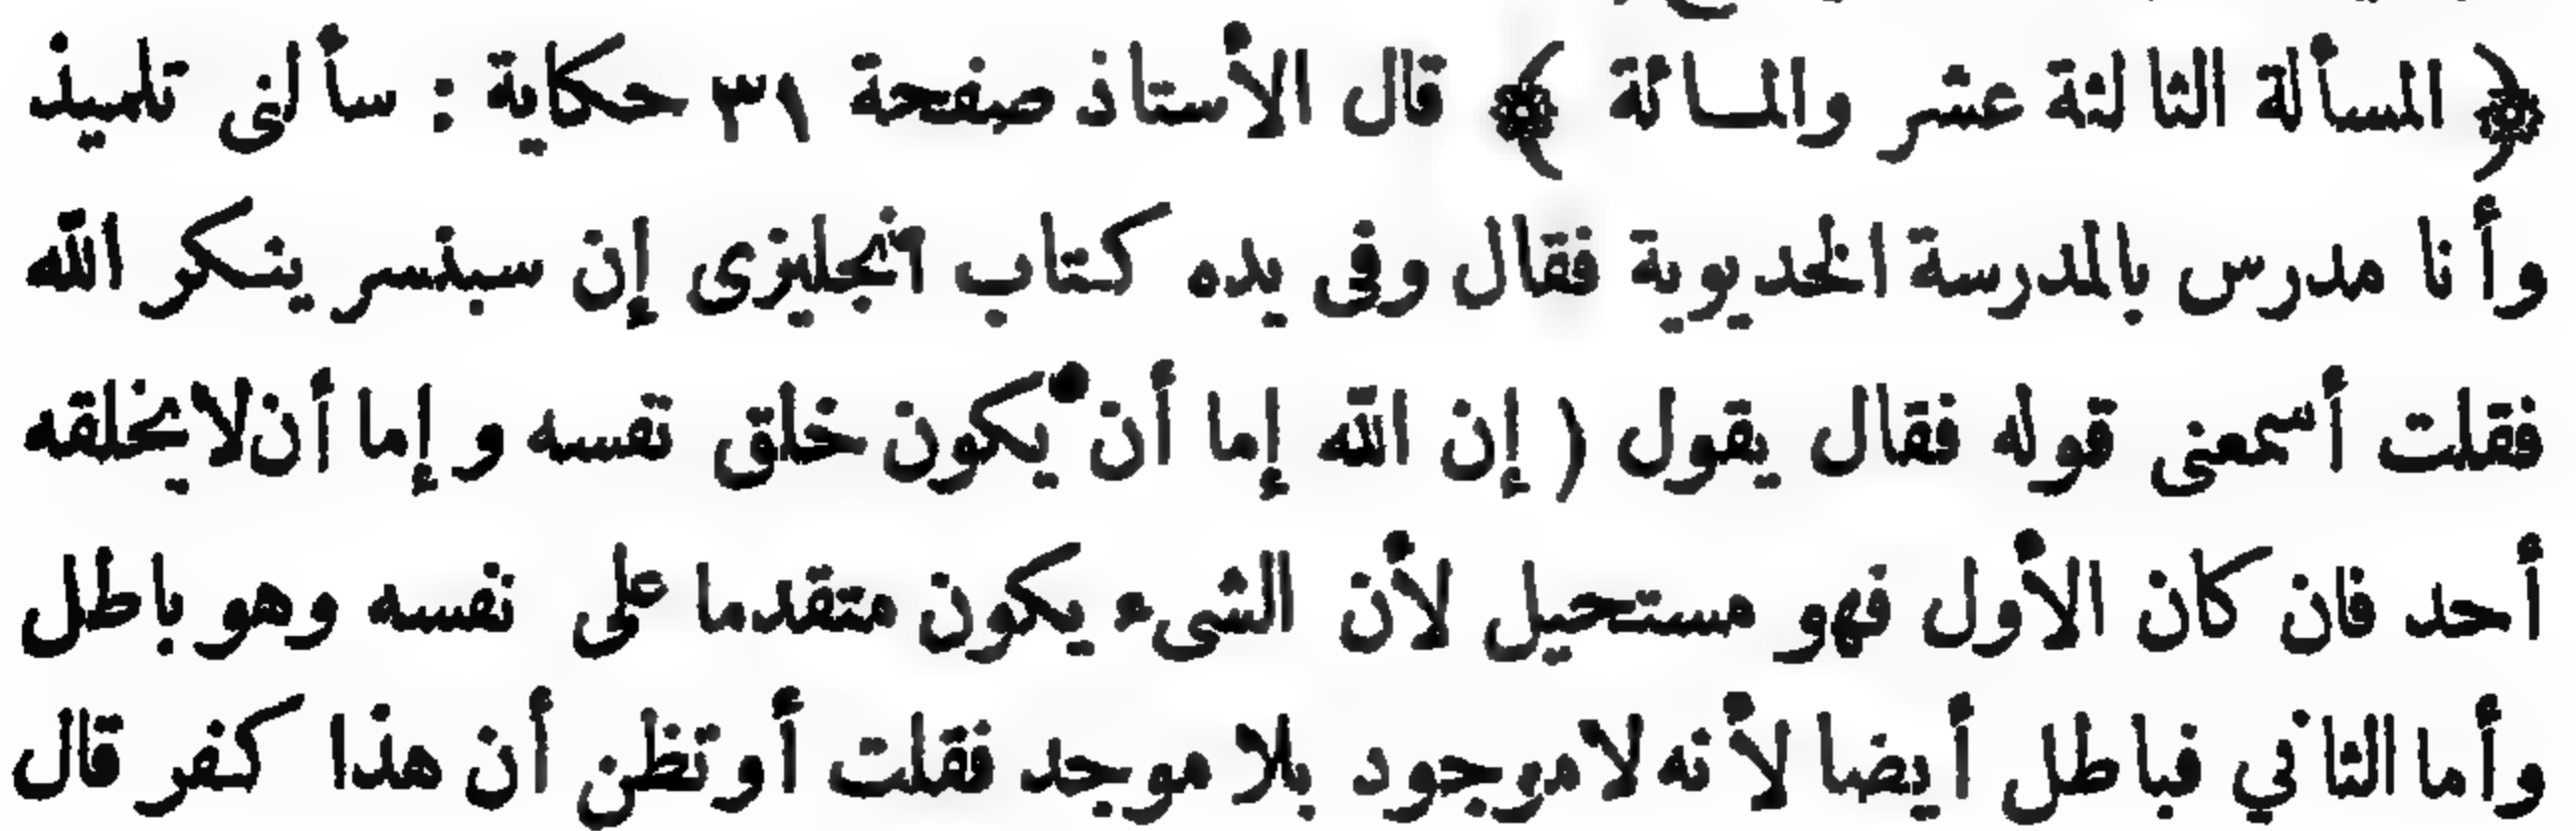 ﴿ المسألة الثالثة عشر والمائة ﴾ قال الأستاذ صفحة ٣١ حكاية : سألنى تلميذ
وأنا مدرس بالمدرسة الخديوية فقال وفى يده كتاب انجليزى إن سبنسر ينكر الله
فقلت أسمعنى قوله فقال يقول ( إن الله إما أن يكون خلق نفسه وإما أن لا يخلقه
أحد فان كان الأول فهو مستحيل لأن الشىء يكون متقدما على نفسه وهو باطل
وأما الثاني فباطل أيضا لأنه لا موجود بلا موجد فقلت أو تظن أن هذا كفر قال